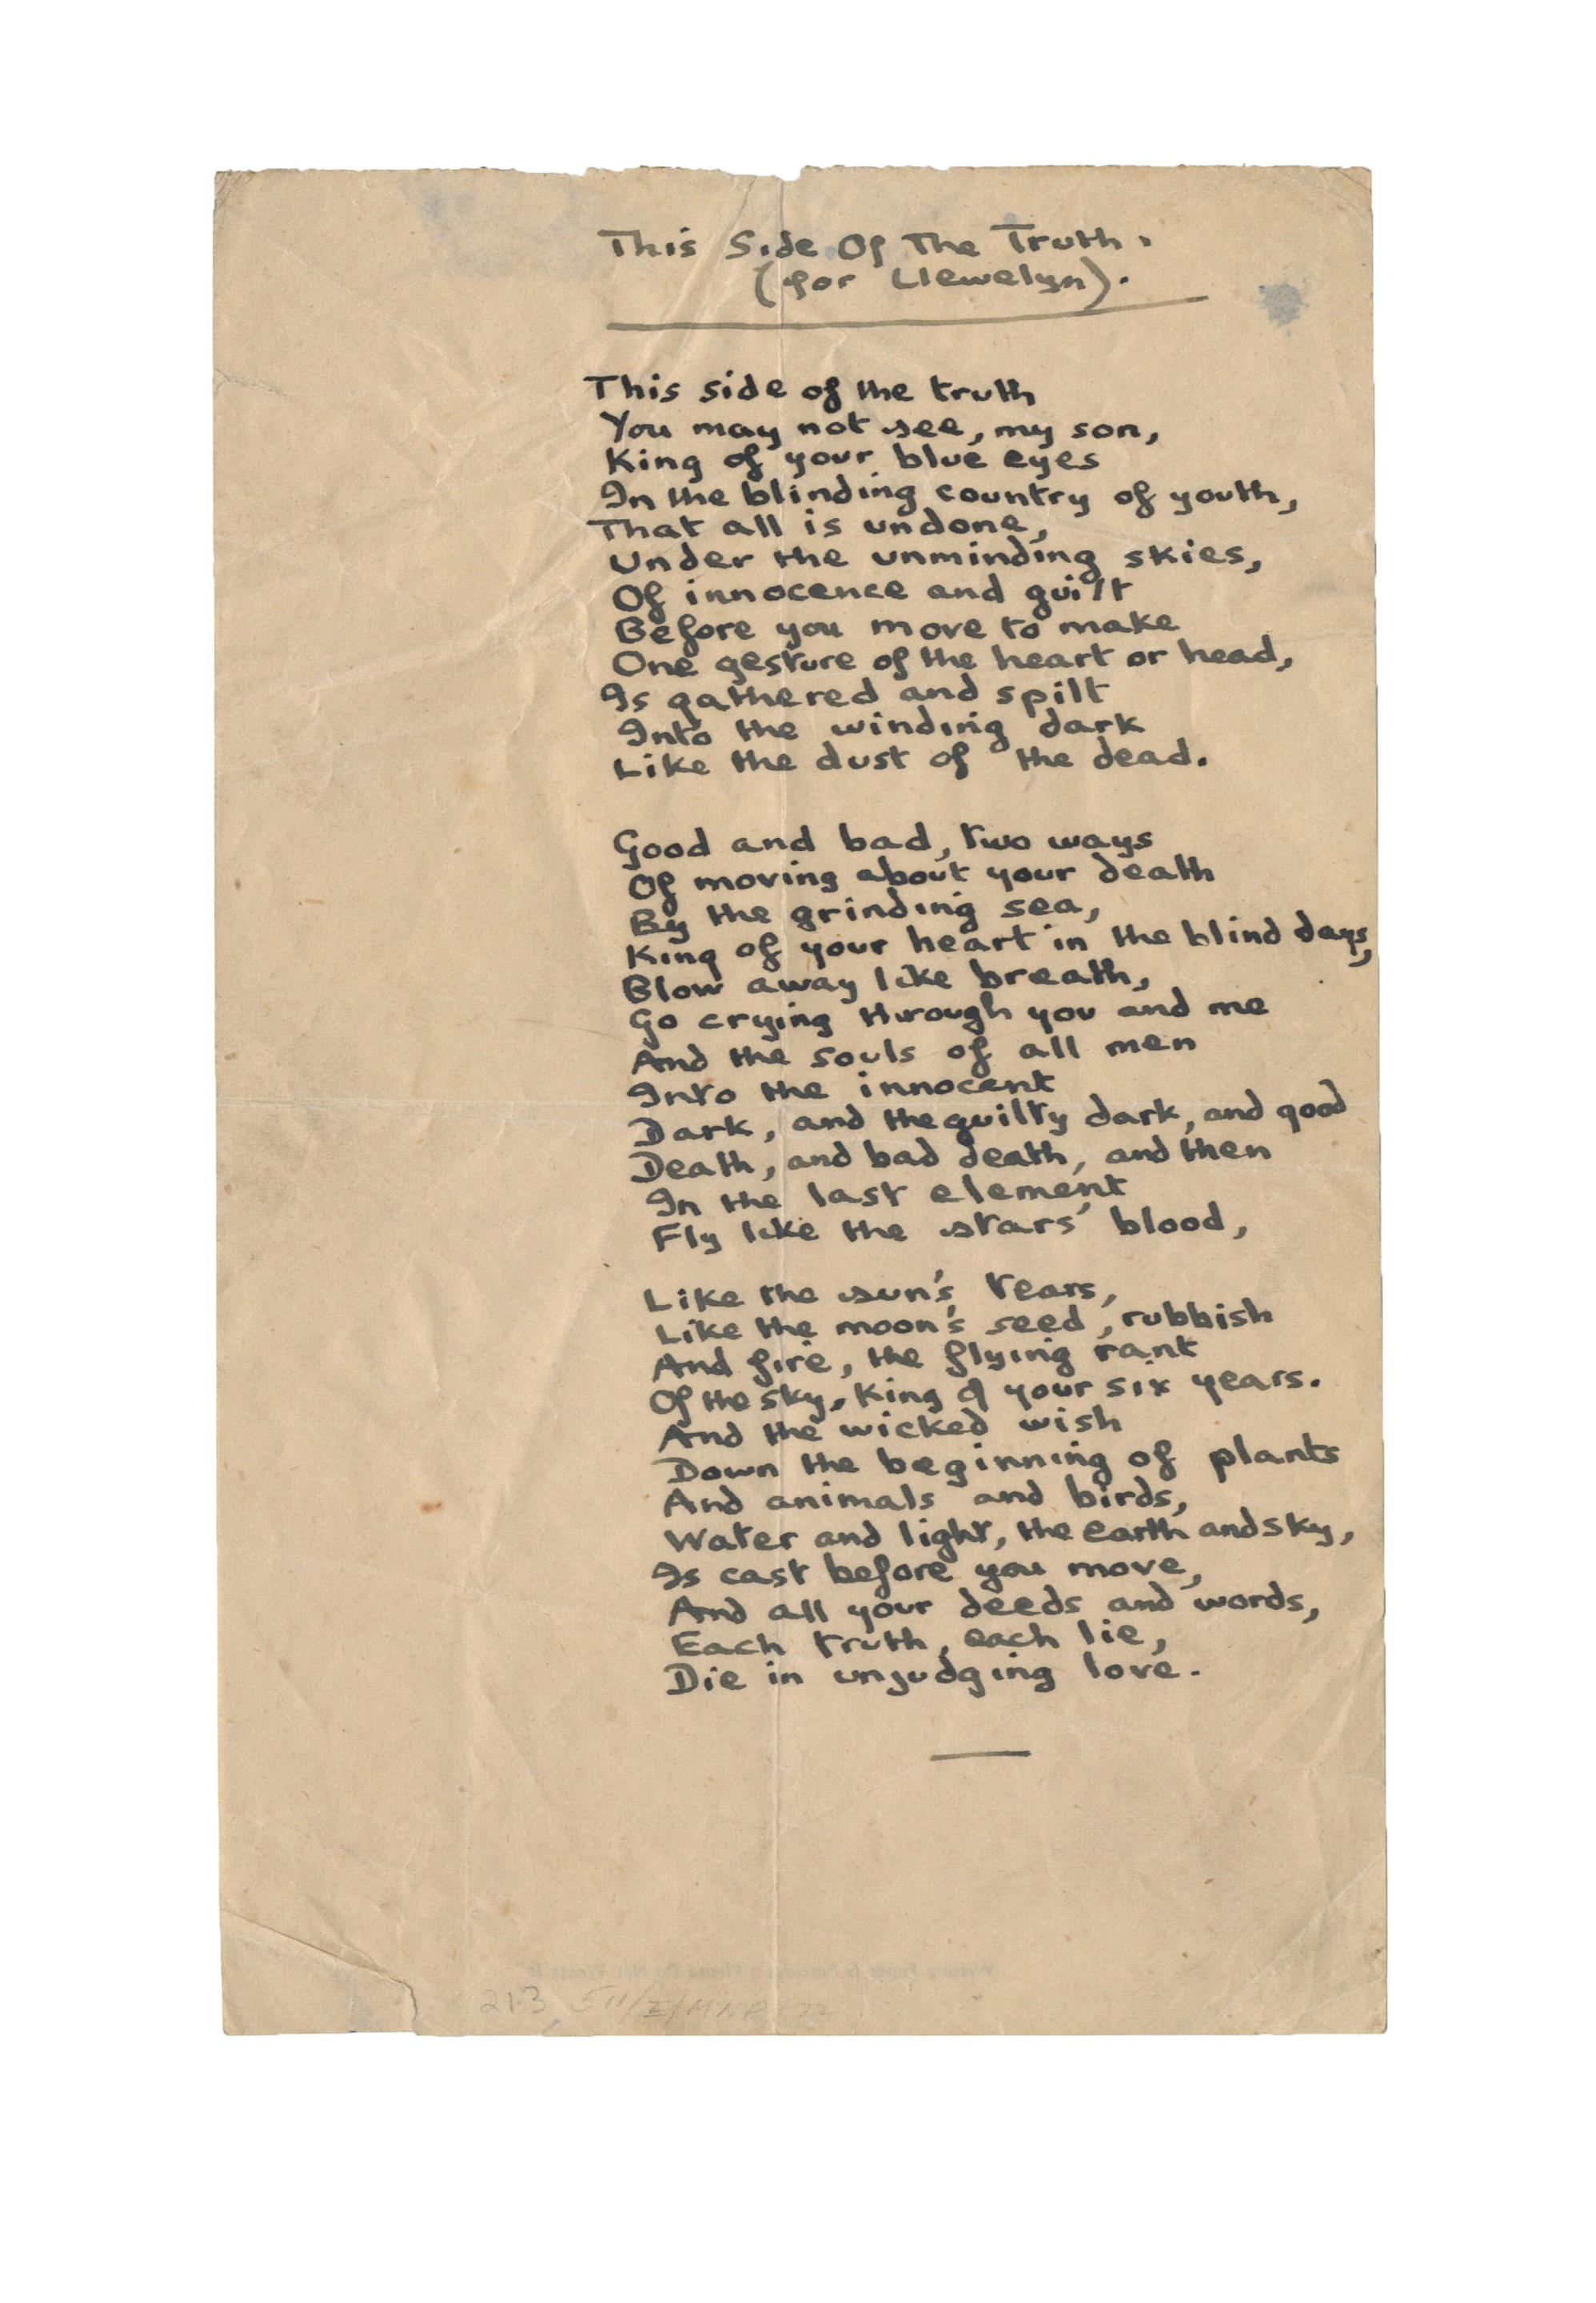 This Side Of The Truth.
(for Llewelyn).
This side of the truth
You may not see, my son,
King of your blue eyes
In the blinding country of youth,
That all is undone,
Under the unminding skies,
Of innocence and guilt
Before you move to make
One gesture of the heart or head,
Is gathered and spilt
Into the winding dark
Like the dust of the dead.
Good and bad, two ways
Of moving about your death
By the grinding sea,
King of your heart in the blind days,
Blow away like breath,
Go crying through you and me
And the souls of all men
Into the innocent
Dark, and the guilty dark, and good
Death, and bad death, and then
In the last element
Fly like the stars' blood,
Like the sun's tears,
Like the moon's seed, rubbish
And fire, the flying rant
Of the sky, King of your six years.
And the wicked wish
Down the beginning of plants
And animals and birds,
Water and light, the earth and sky,
Is cast before you move,
And all your deeds and words,
Each truth, each lie,
Die in unjudging love.
213